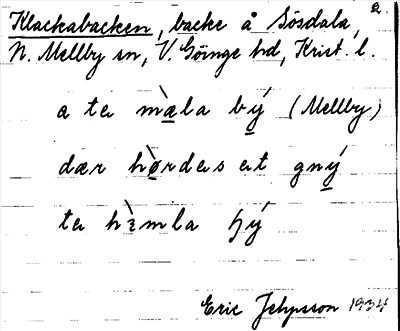 2.
Klackabacken, backe å Sösdala,
N. Mellby sn, V. Göinge hd, Krist. l.
a te mæ̀la bý (Mellby)
dær hø̀rdes et gný
te hìmla ķý
Eric Jehpsson 1934